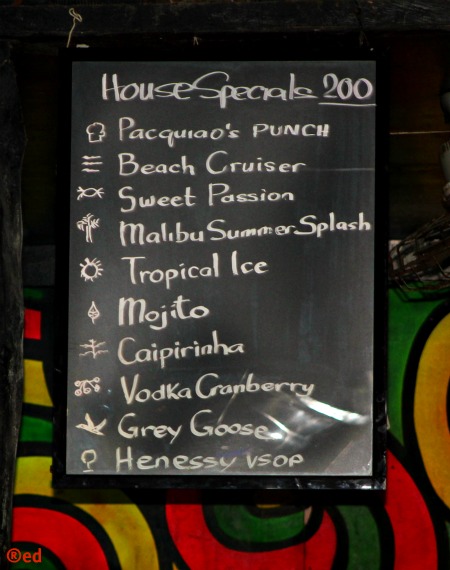 House Specials 200
Pacquiao's PUNCH
Beach Cruiser
Sweet Passion
Malibu Summer Splash
Tropical Ice
Mojito
Caipirinha
Vodka Cranberry
Grey Goose
Henessy VSOP
®ed